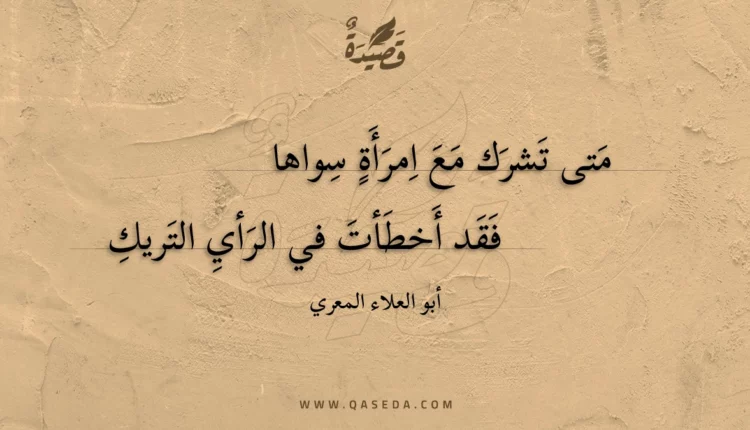 قَصِيْدَةٌ
مَتى تَشرَك مَعَ اِمرَأَةٍ سِواها
فَقَد أَخطَأتَ في الرَأيِ التَريكِ
أبو العلاء المعري
WWW.QASEDA.COM